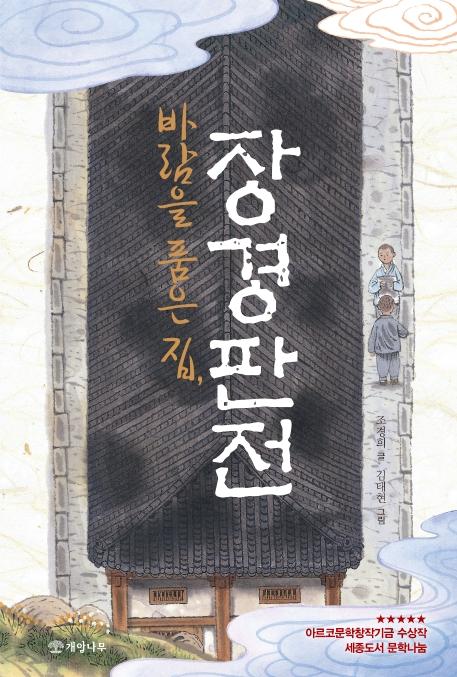 바람을 품은 집,
장경판전
조경희 글 김태현 그림
★★★★★
아르코문학창작기금 수상작
세종도서 문학나눔
개암나무